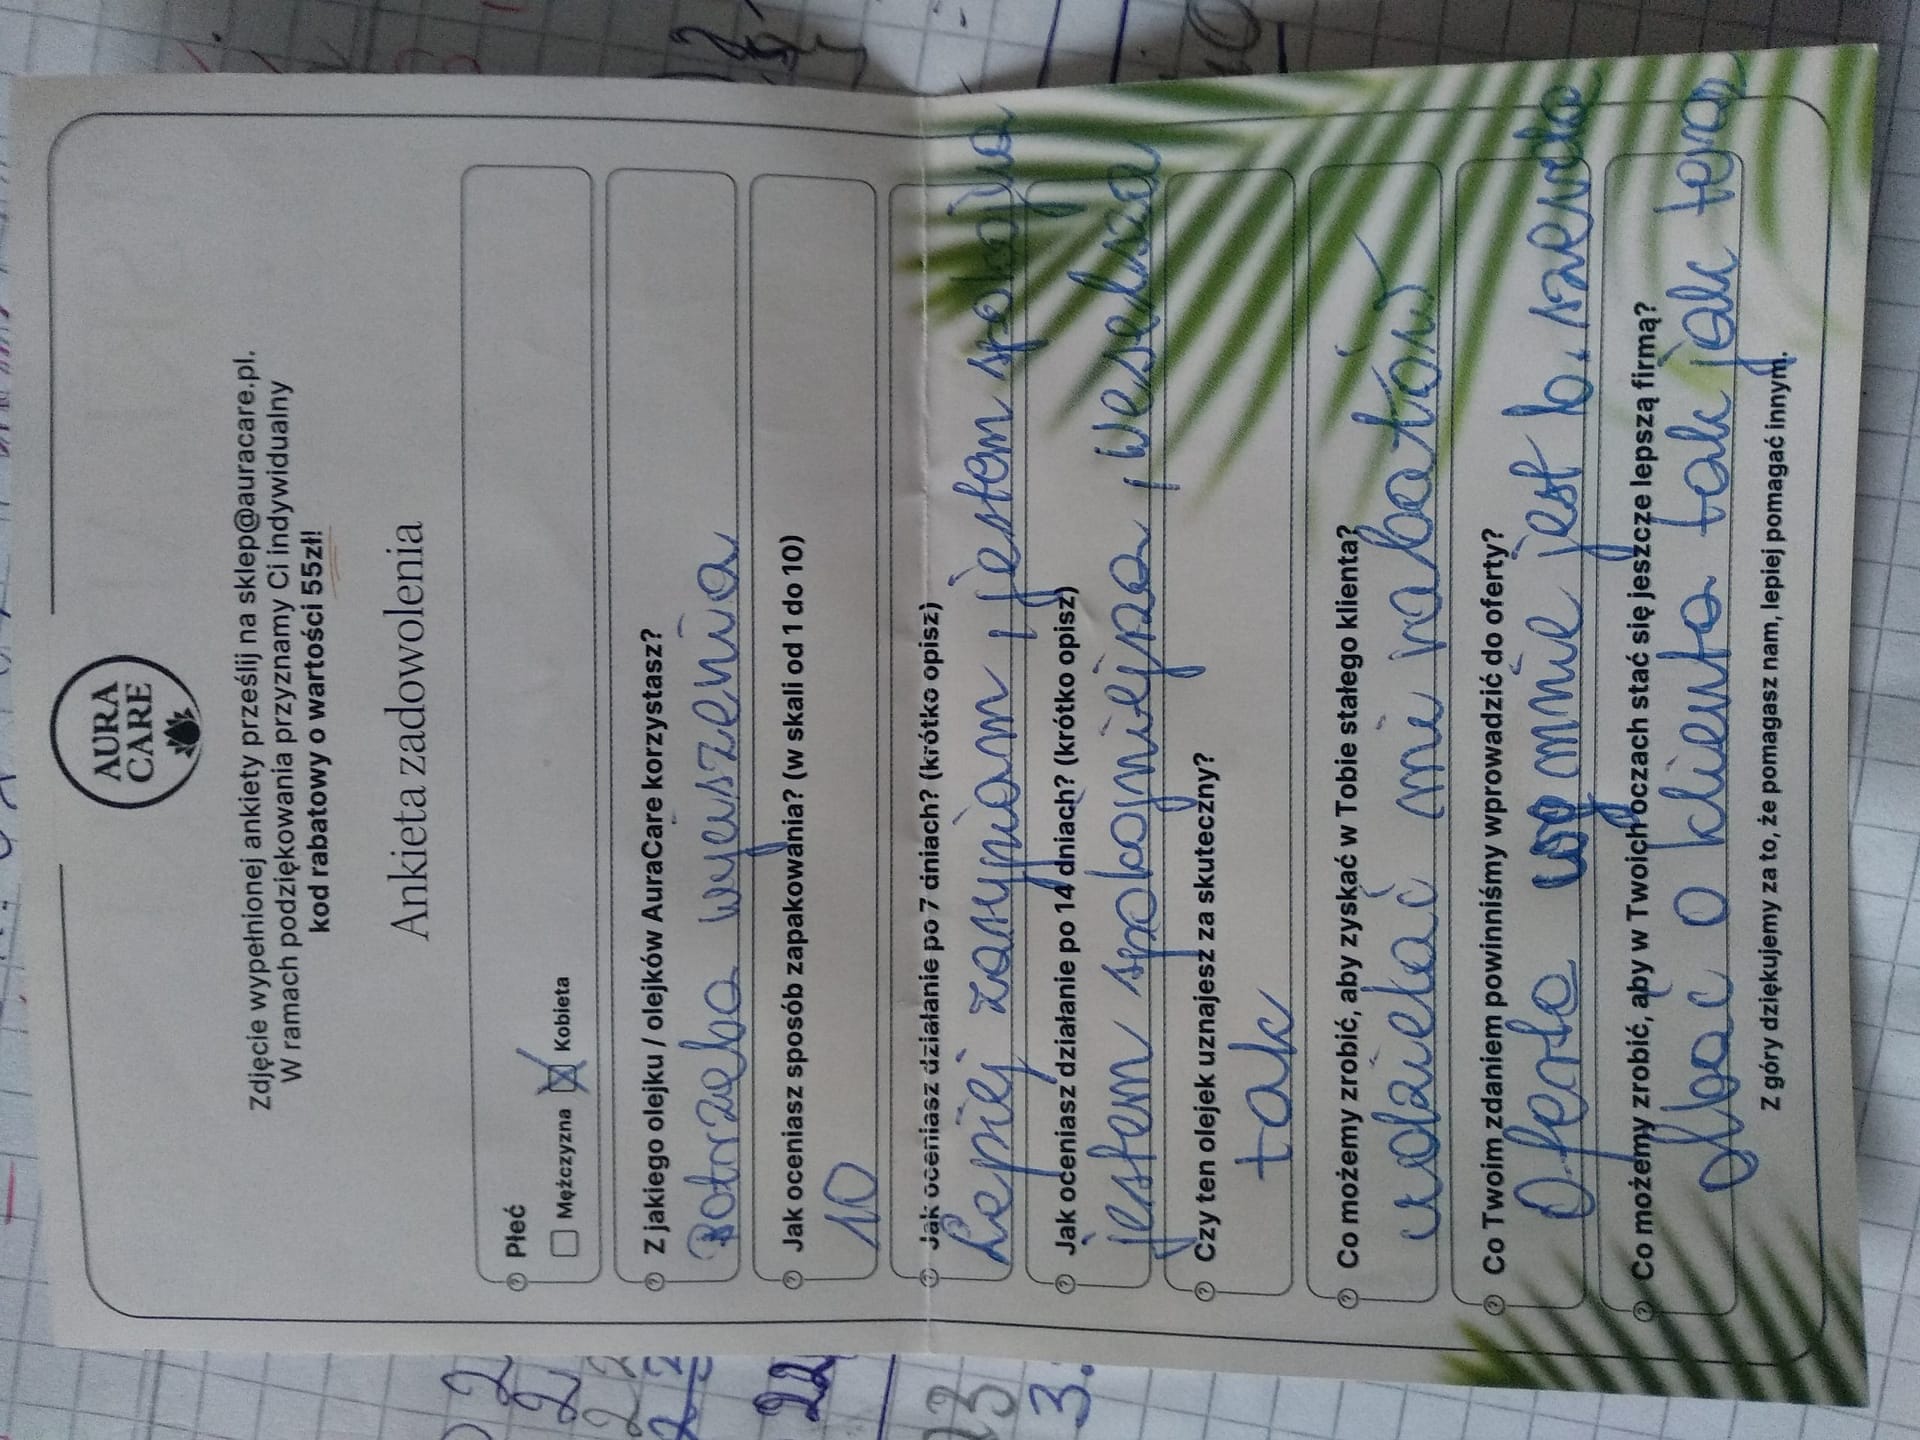 AURA
CARE
Zdjęcie wypełnionej ankiety prześlij na sklep@auracare.pl.
W ramach podziękowania przyznamy Ci indywidualny
kod rabatowy o wartości 55zł!
Ankieta zadowolenia
Płeć
Mężczyzna Kobieta
Z jakiego olejku / olejków AuraCare korzystasz?
Potrzeba wyciszenia
Jak oceniasz sposób zapakowania? (w skali od 1 do 10)
10
Jak oceniasz działanie po 7 dniach? (krótko opisz)
Lepiej zasypiam, jestem spokojna
Jak oceniasz działanie po 14 dniach? (krótko opisz)
jestem spokojniejsza, weselsza
Czy ten olejek uznajesz za skuteczny?
tak
Co możemy zrobić, aby zyskać w Tobie stałego klienta?
udzielać mi rabatów
Co Twoim zdaniem powinniśmy wprowadzić do oferty?
Oferta mnie jest b. szeroka
Co możemy zrobić, aby w Twoich oczach stać się jeszcze lepszą firmą?
dbać o klienta tak jak teraz
Z góry dziękujemy za to, że pomagasz nam, lepiej pomagać innym.
2
2
22
22
22
23
3.